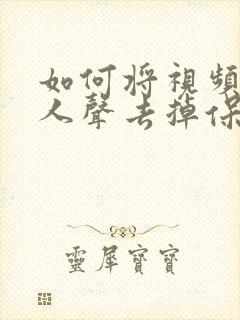 如何将視頻
人聲去掉保
靈犀寶寶